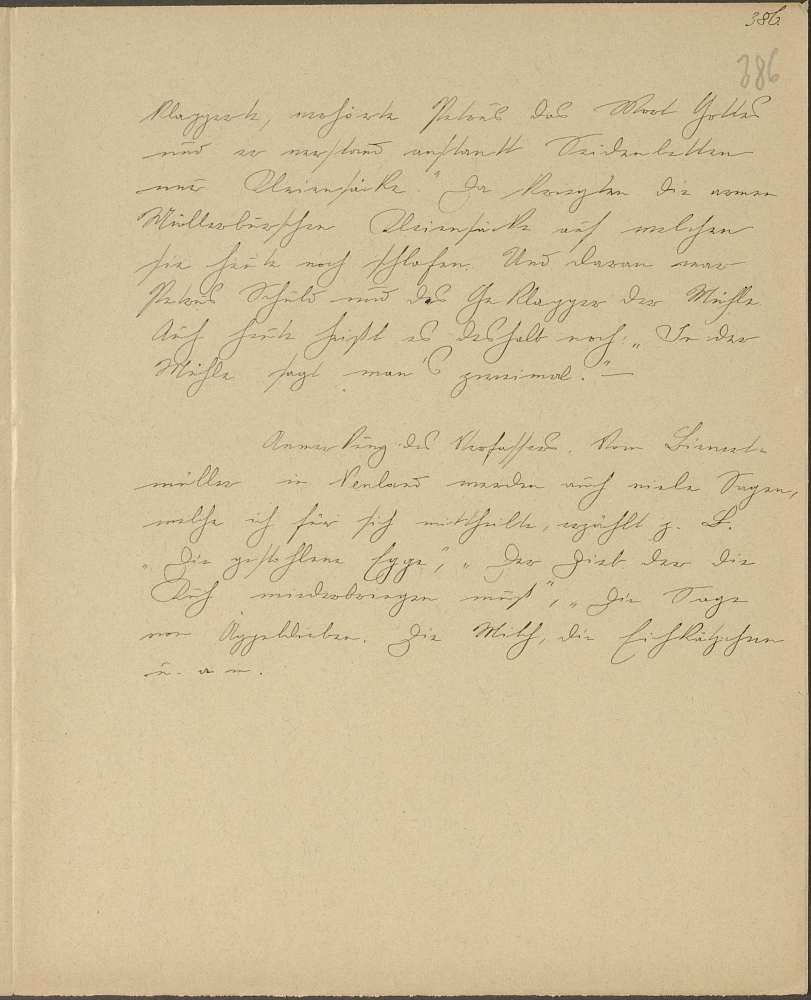 386.
386
klapperte, verhörte Petrus das Wort Gottes
und er verstand anstantt Seidenbetten
nur Kleiensäcke." Da kriegten die armen
Müllerburschen Kleiensäcke auf welchen
sie heute noch schlafen. Und daran war
Petrus Schuld und das Geklapper der Mühle.
Auch heute heißt es deshalb noch: „In der
Mühle sagt man's zweimal." —
Anmerkung des Verfassers. Vom
müller in Venland werden auch viele Sagen,
welche ich für sich mittheilte, erzählt z. B.
„Die gestohlene Egge", „Der Dieb der die
Kuh wiederbringen muß", „Die Sage
von Äppeldieben. Die Milch, die Eichkätzchen
u. a. m.